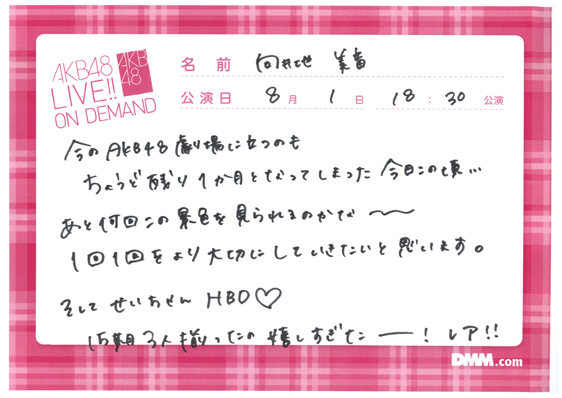 AKB48
LIVE!!
ON DEMAND
AKB
48
名前 向井地 美音
公演日 8月 1日 18:30 公演
今のAKB48劇場に立つのも
ちょうど残り1か月となってしまった今日この頃...
あと何回この景色を見られるのかな〜
1回1回をより大切にしていきたいと思います。
そして せいちゃん HBD♡
15期3人揃ったの嬉しすぎたー! レア!!
DMM.com